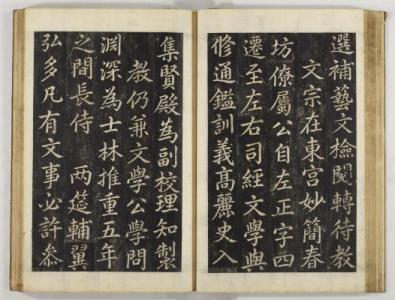 選補藝文檢閱轉待教
文宗在東宮妙簡春
坊僚屬公自左正字四
遷至左右司經文學與
修通鑑訓義高麗史入
集賢殿為副校理知製
教仍兼文學公學問
淵深為士林推重五年
之間長侍 两筵輔翼
弘多凡有文事必許叅